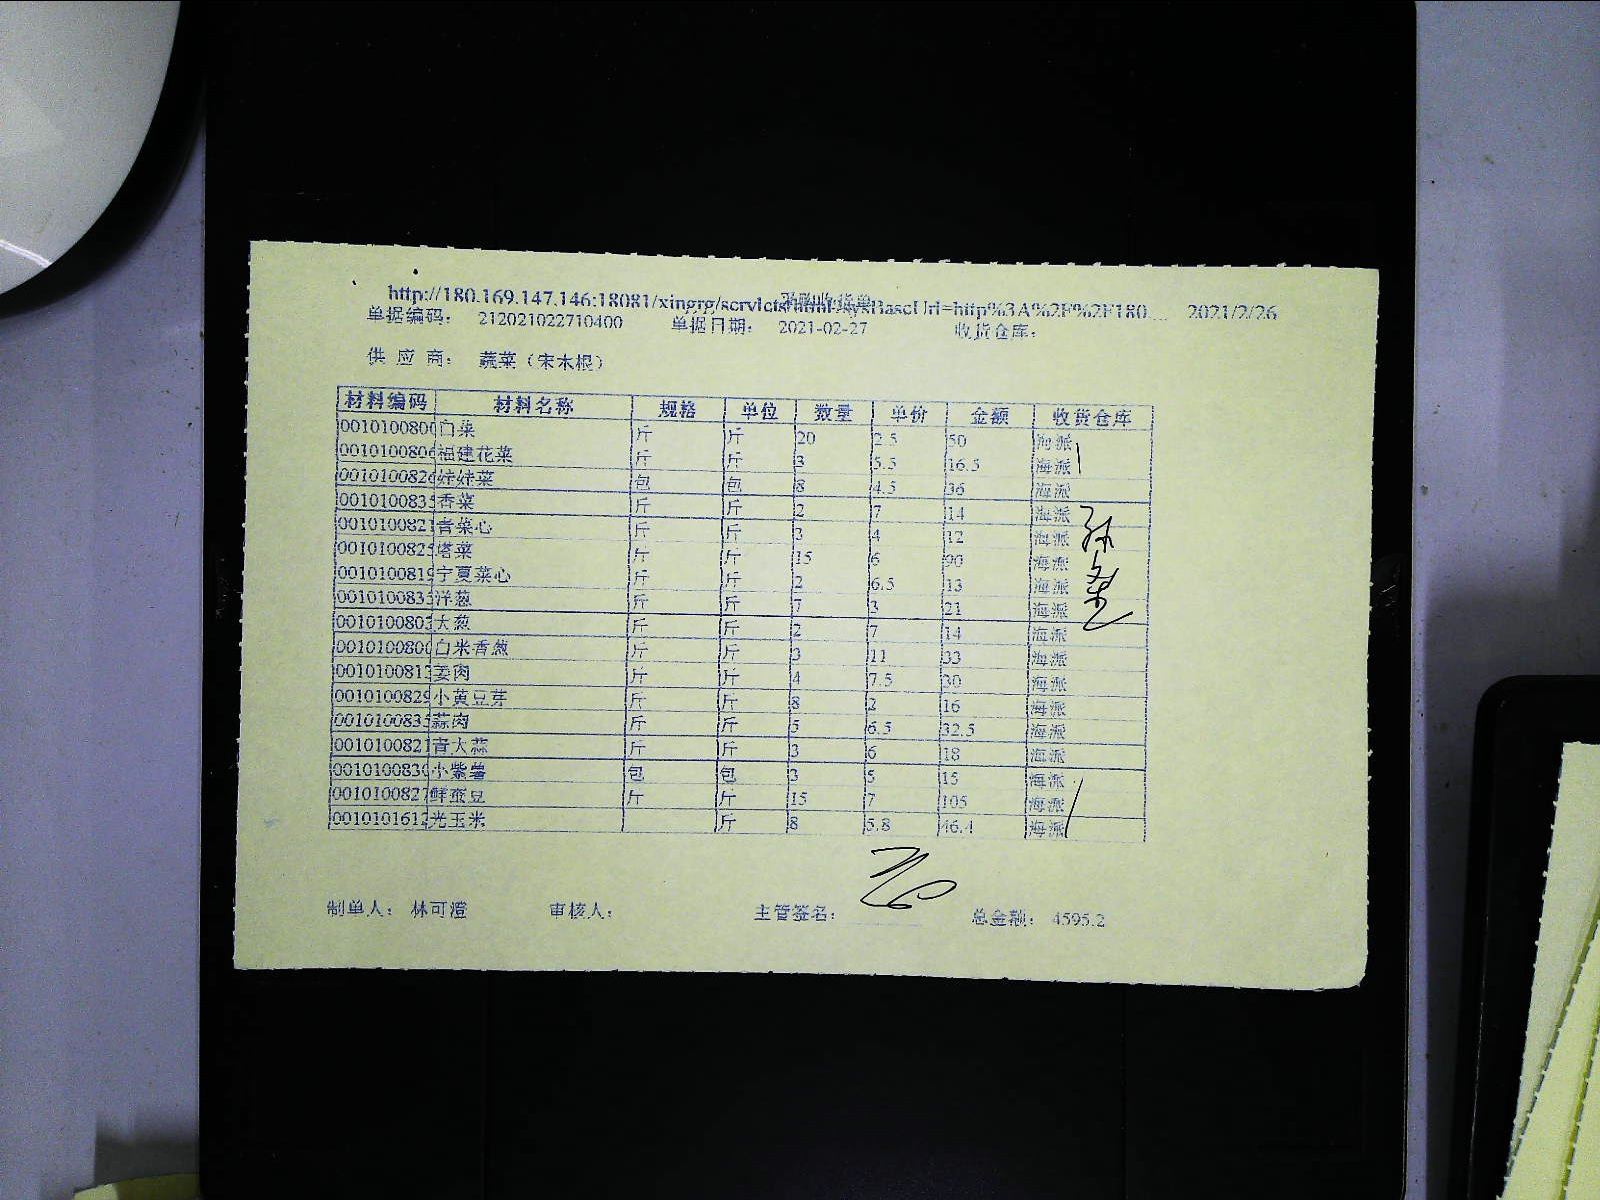 http://180.169.147.146:18081/xingrg/servlets/html/sysBaseUrl=http%3A%2F%2F180.... 2021/2/26
单据编码： 212021022710400 单据日期： 2021-02-27 收货仓库：
供 应 商： 蔬菜（宋木根）
材料编码 材料名称 规格 单位 数量 单价 金额 收货仓库
0010100800 白菜 斤 斤 20 2.5 50 海派
0010100806 福建花菜 斤 斤 3 5.5 16.5 海派
0010100826 娃娃菜 包 包 8 4.5 36 海派
0010100835 香菜 斤 斤 2 7 14 海派
0010100821 青菜心 斤 斤 3 4 12 海派
0010100825 塔菜 斤 斤 15 6 90 海派
0010100819 宁夏菜心 斤 斤 2 6.5 13 海派
001010083 洋葱 斤 斤 7 3 21 海派
0010100803 大葱 斤 斤 2 7 14 海派
0010100800 白米香葱 斤 斤 3 11 33 海派
0010100813 姜肉 斤 斤 4 7.5 30 海派
0010100829 小黄豆芽 斤 斤 8 2 16 海派
0010100835 蒜肉 斤 斤 5 6.5 32.5 海派
0010100821 青大蒜 斤 斤 3 6 18 海派
0010100830 小紫薯 包 包 3 5 15 海派
0010100827 鲜蚕豆 斤 斤 15 7 105 海派
0010101612 光玉米 斤 8 5.8 46.4 海派
制单人： 林可澄 审核人： 主管签名： 总金额： 4595.2